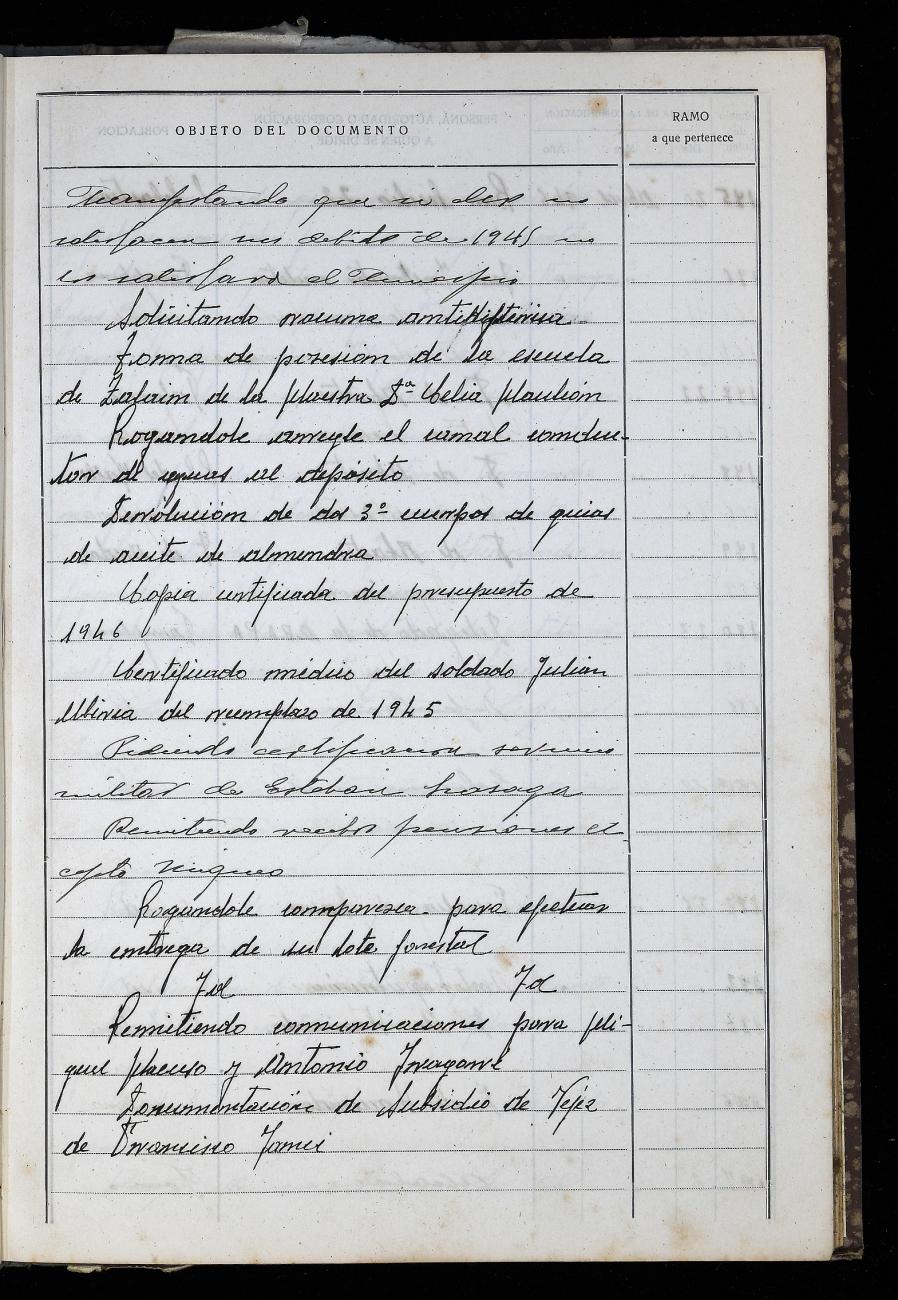 OBJETO DEL DOCUMENTO
RAMO
a que pertenece
Manifestando que si ellos no
satisfacen sus debitos de 1945 no
los satisfará el Municipio
Solicitando vacuna antidifterica
Toma de posesión de la escuela
de Zalain de la Maestra Dª Celia Mauleón
Rogandole arregle el canal conduc-
tor de aguas al depósito
Devolución de dos 3º cuerpos de guias
de aceite de almendra
Copia certificada del presupuesto de
1946
Certificado médico del soldado Julian
del reemplazo de 1945
Pidiendo certificacion servicio
militar de Esteban
Remitiendo recibos pensiones el
cpto
Rogandole comparezca para efectuar
la entrega de su lote forestal
Id Id
Remitiendo comunicaciones para Mi-
guel y Antonio
Documentación de Subsidio de Vejez
de Francisco